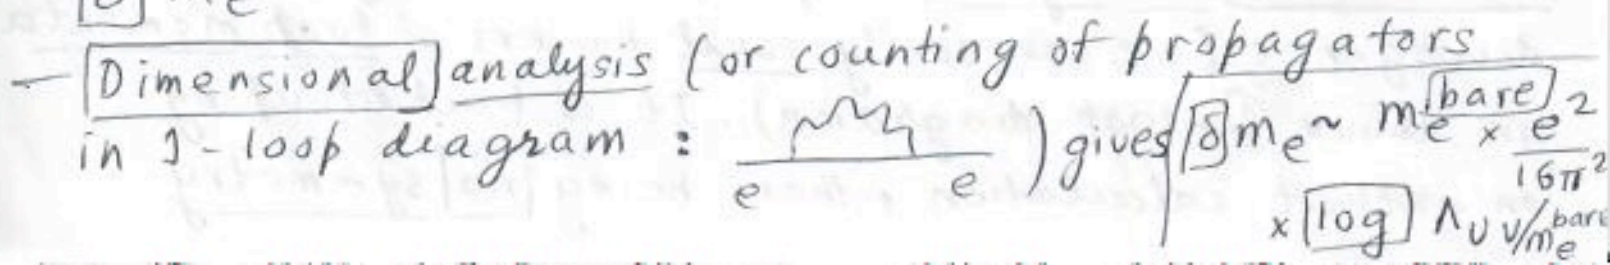 - Dimensional analysis (or counting of propagators
in 1-loop diagram : e e ) gives δm_e ~ m_e^bare × e^2/16π^2
× log Λ_UV/m_e^bare